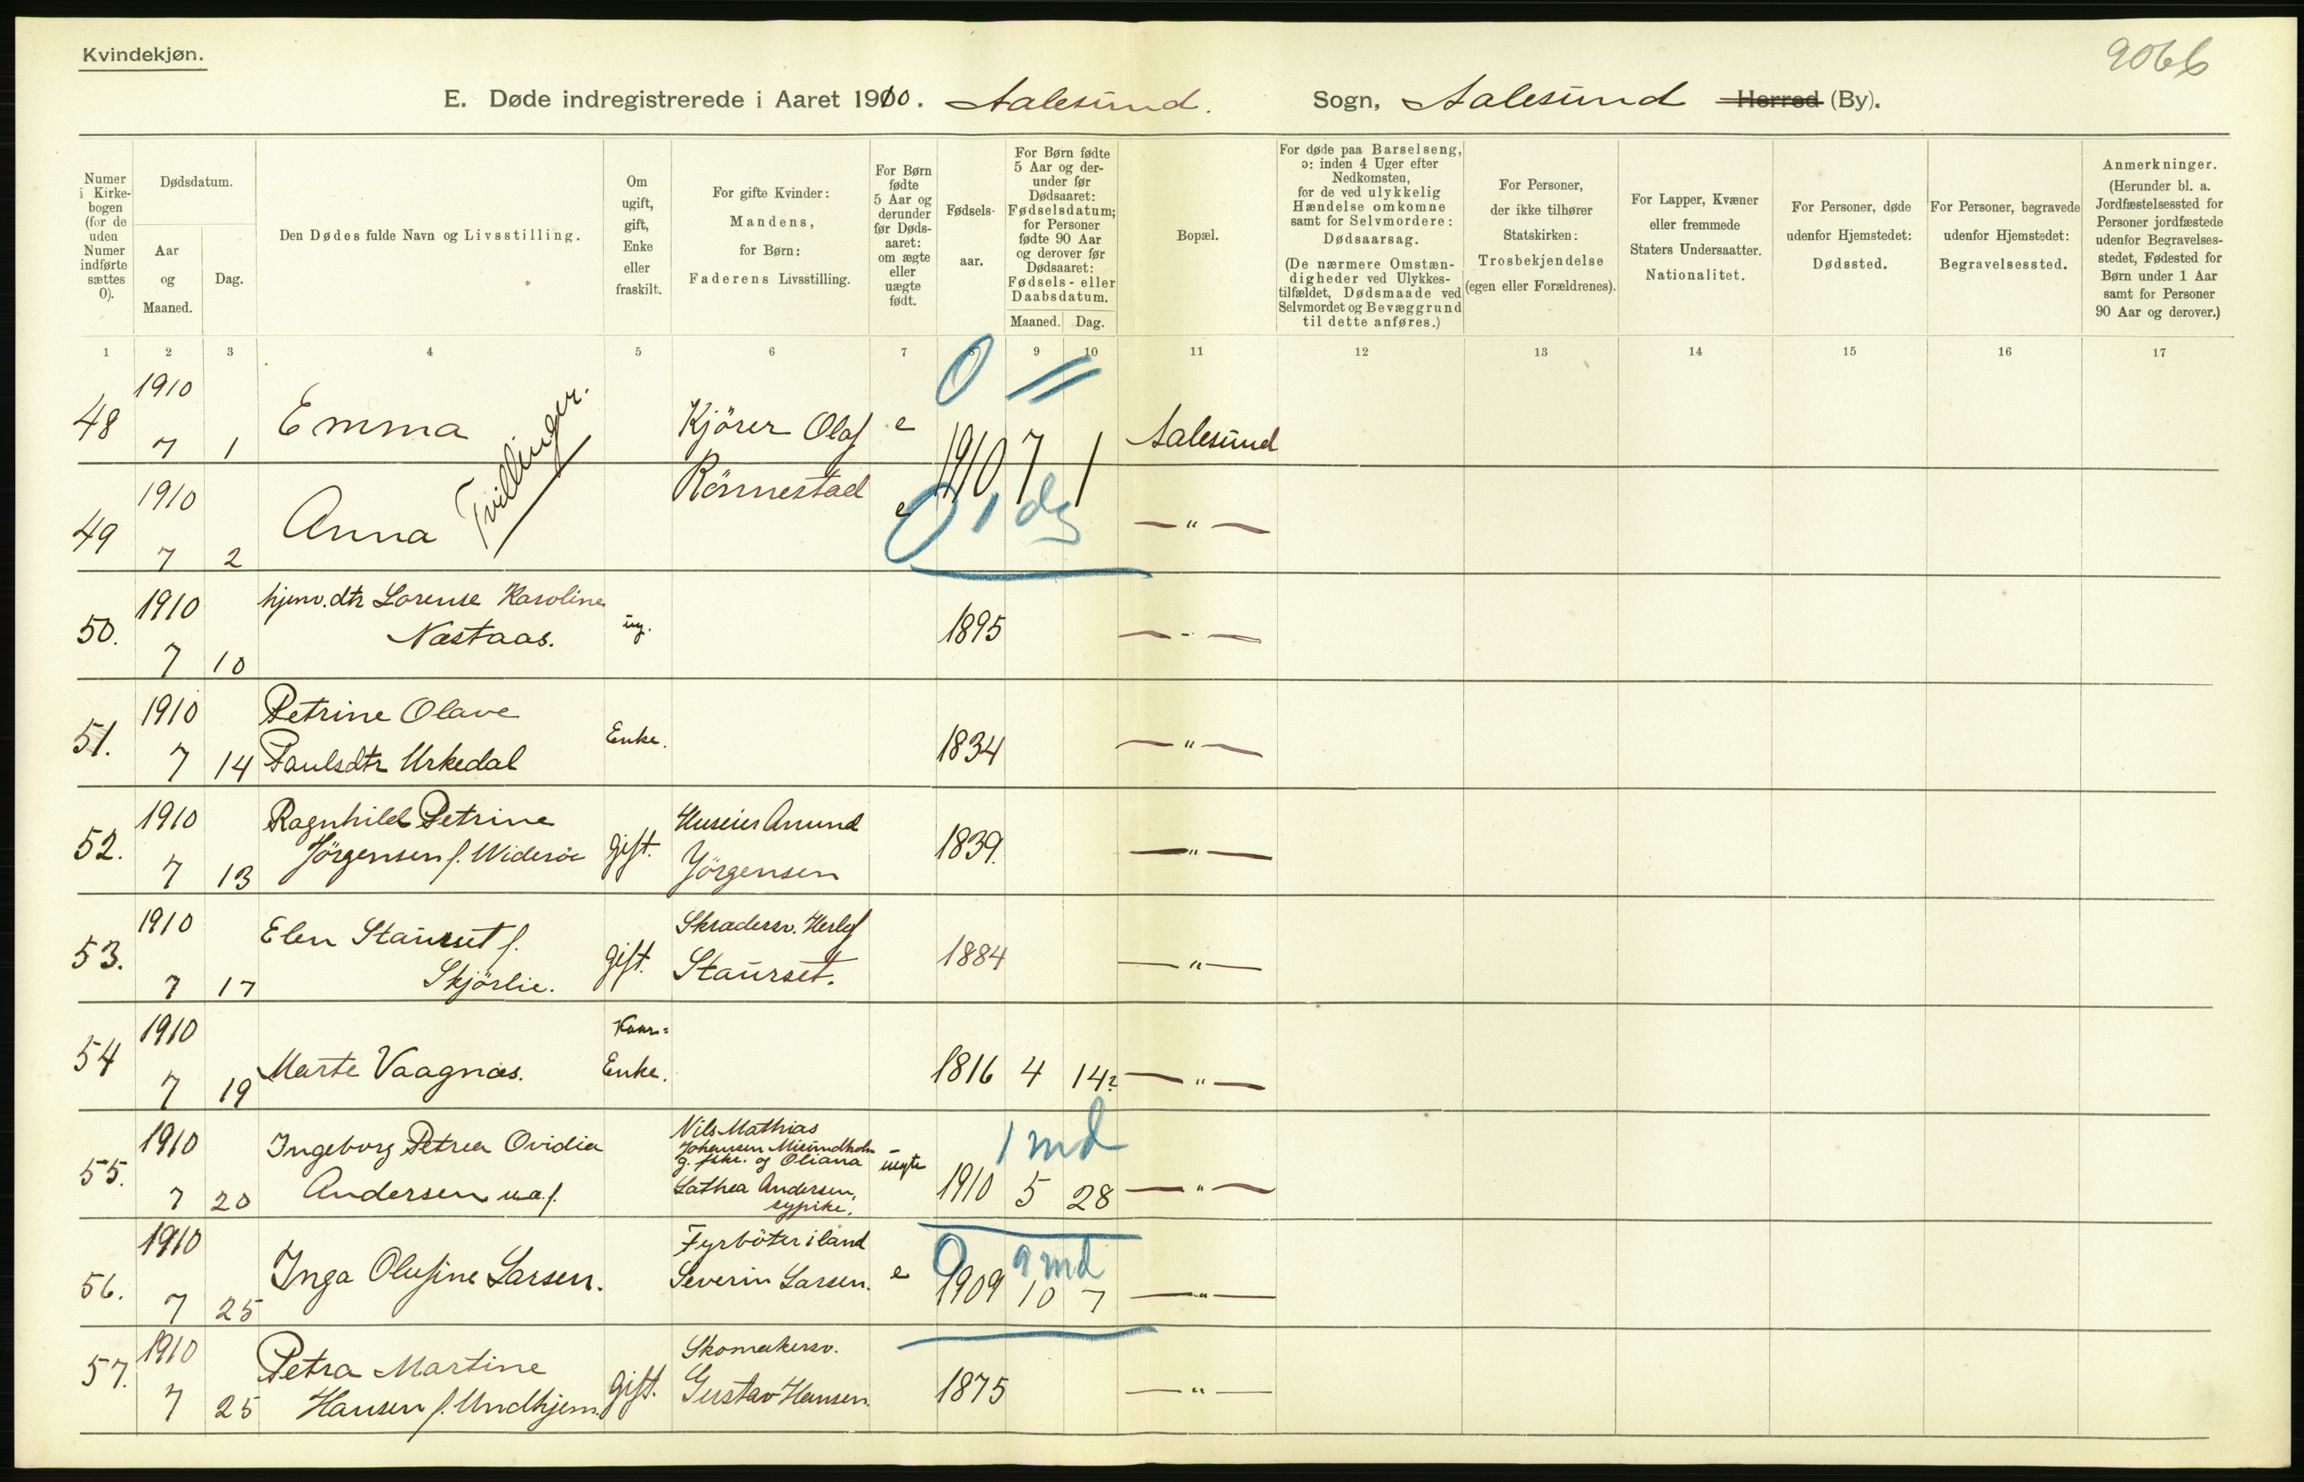 Kvindekjøn.
9066
E. Døde indregistrerede i Aaret 1910. Aalesund. Sogn, Aalesund Herred (By).
Numer i Kirkebogen (for de uden Numer indførte sættes 0).
Dødsdatum.
Aar og Maaned.
Dag.
Den Dødes fulde Navn og Livsstilling.
Om ugift, gift, Enke eller fraskilt.
For gifte Kvinder: Mandens, for Børn: Faderens Livsstilling.
For Børn fødte 5 Aar og derunder før Dødsaaret: om ægte eller uægte født.
Fødselsaar.
For Børn fødte 5 Aar og derunder før Dødsaaret: Fødselsdatum; for Personer fødte 90 Aar og derover før Dødsaaret: Fødsels- eller Daabsdatum.
Maaned. Dag.
Bopæl.
For døde paa Barselseng, ɔ: inden 4 Uger efter Nedkomsten, for de ved ulykkelig Hændelse omkomne samt for Selvmordere: Dødsaarsag. (De nærmere Omstændigheder ved Ulykkestilfældet, Dødsmaade ved Selvmordet og Bevæggrund til dette anføres.)
For Personer, der ikke tilhører Statskirken: Trosbekjendelse (egen eller Forældrenes).
For Lapper, Kvæner eller fremmede Staters Undersaatter. Nationalitet.
For Personer, døde udenfor Hjemstedet: Dødssted.
For Personer, begravede udenfor Hjemstedet: Begravelsessted.
Anmerkninger. (Herunder bl. a. Jordfæstelsessted for Personer jordfæstede udenfor Begravelsesstedet, Fødested for Børn under 1 Aar samt for Personer 90 Aar og derover.)
1 2 3 4 5 6 7 8 9 10 11 12 13 14 15 16 17
0 "
48 1910 7 1 Emma Kjörer Olaf e 1910 7 1 Aalesund
Tvillinger.
49 1910 7 2 Anna Rönnestad e 0 1 dg — " —
50. 1910 7 10 hjemv. dtr Lorense Karoline Næstaas. ug. 1895 — " —
51. 1910 7 14 Petrine Olave Paulsdtr Urkedal Enke. 1834 — " —
52. 1910 7 13 Ragnhild Petrine Jörgensen f. Wideröe gift. Huseier Amund Jörgensen 1839. — " —
53. 1910 7 17 Elen Staurset f. Skjörlie. gift. Skradersv. Herlef Staurset. 1884 — " —
54 1910 7 19 Marte Vaagnæs. Enke. 1816 4 14? — " —
55. 1910 7 20 Ingeborg Petrea Ovidia Andersen u.a.f. Nils Mathias Johansen Misundholm g. fskr. og Oliana Lathea Andersen, sypike. uegte 1910 5 28 — " —
1 md
56. 1910 7 25 Inga Olufine Larsen. Fyrböter i land Severin Larsen. e 1909 10 7 — " —
0 9 md
57. 1910 7 25 Petra Martine Hansen f. Undhjem. gift. Skomakersv. Gustav Hansen. 1875 — " —